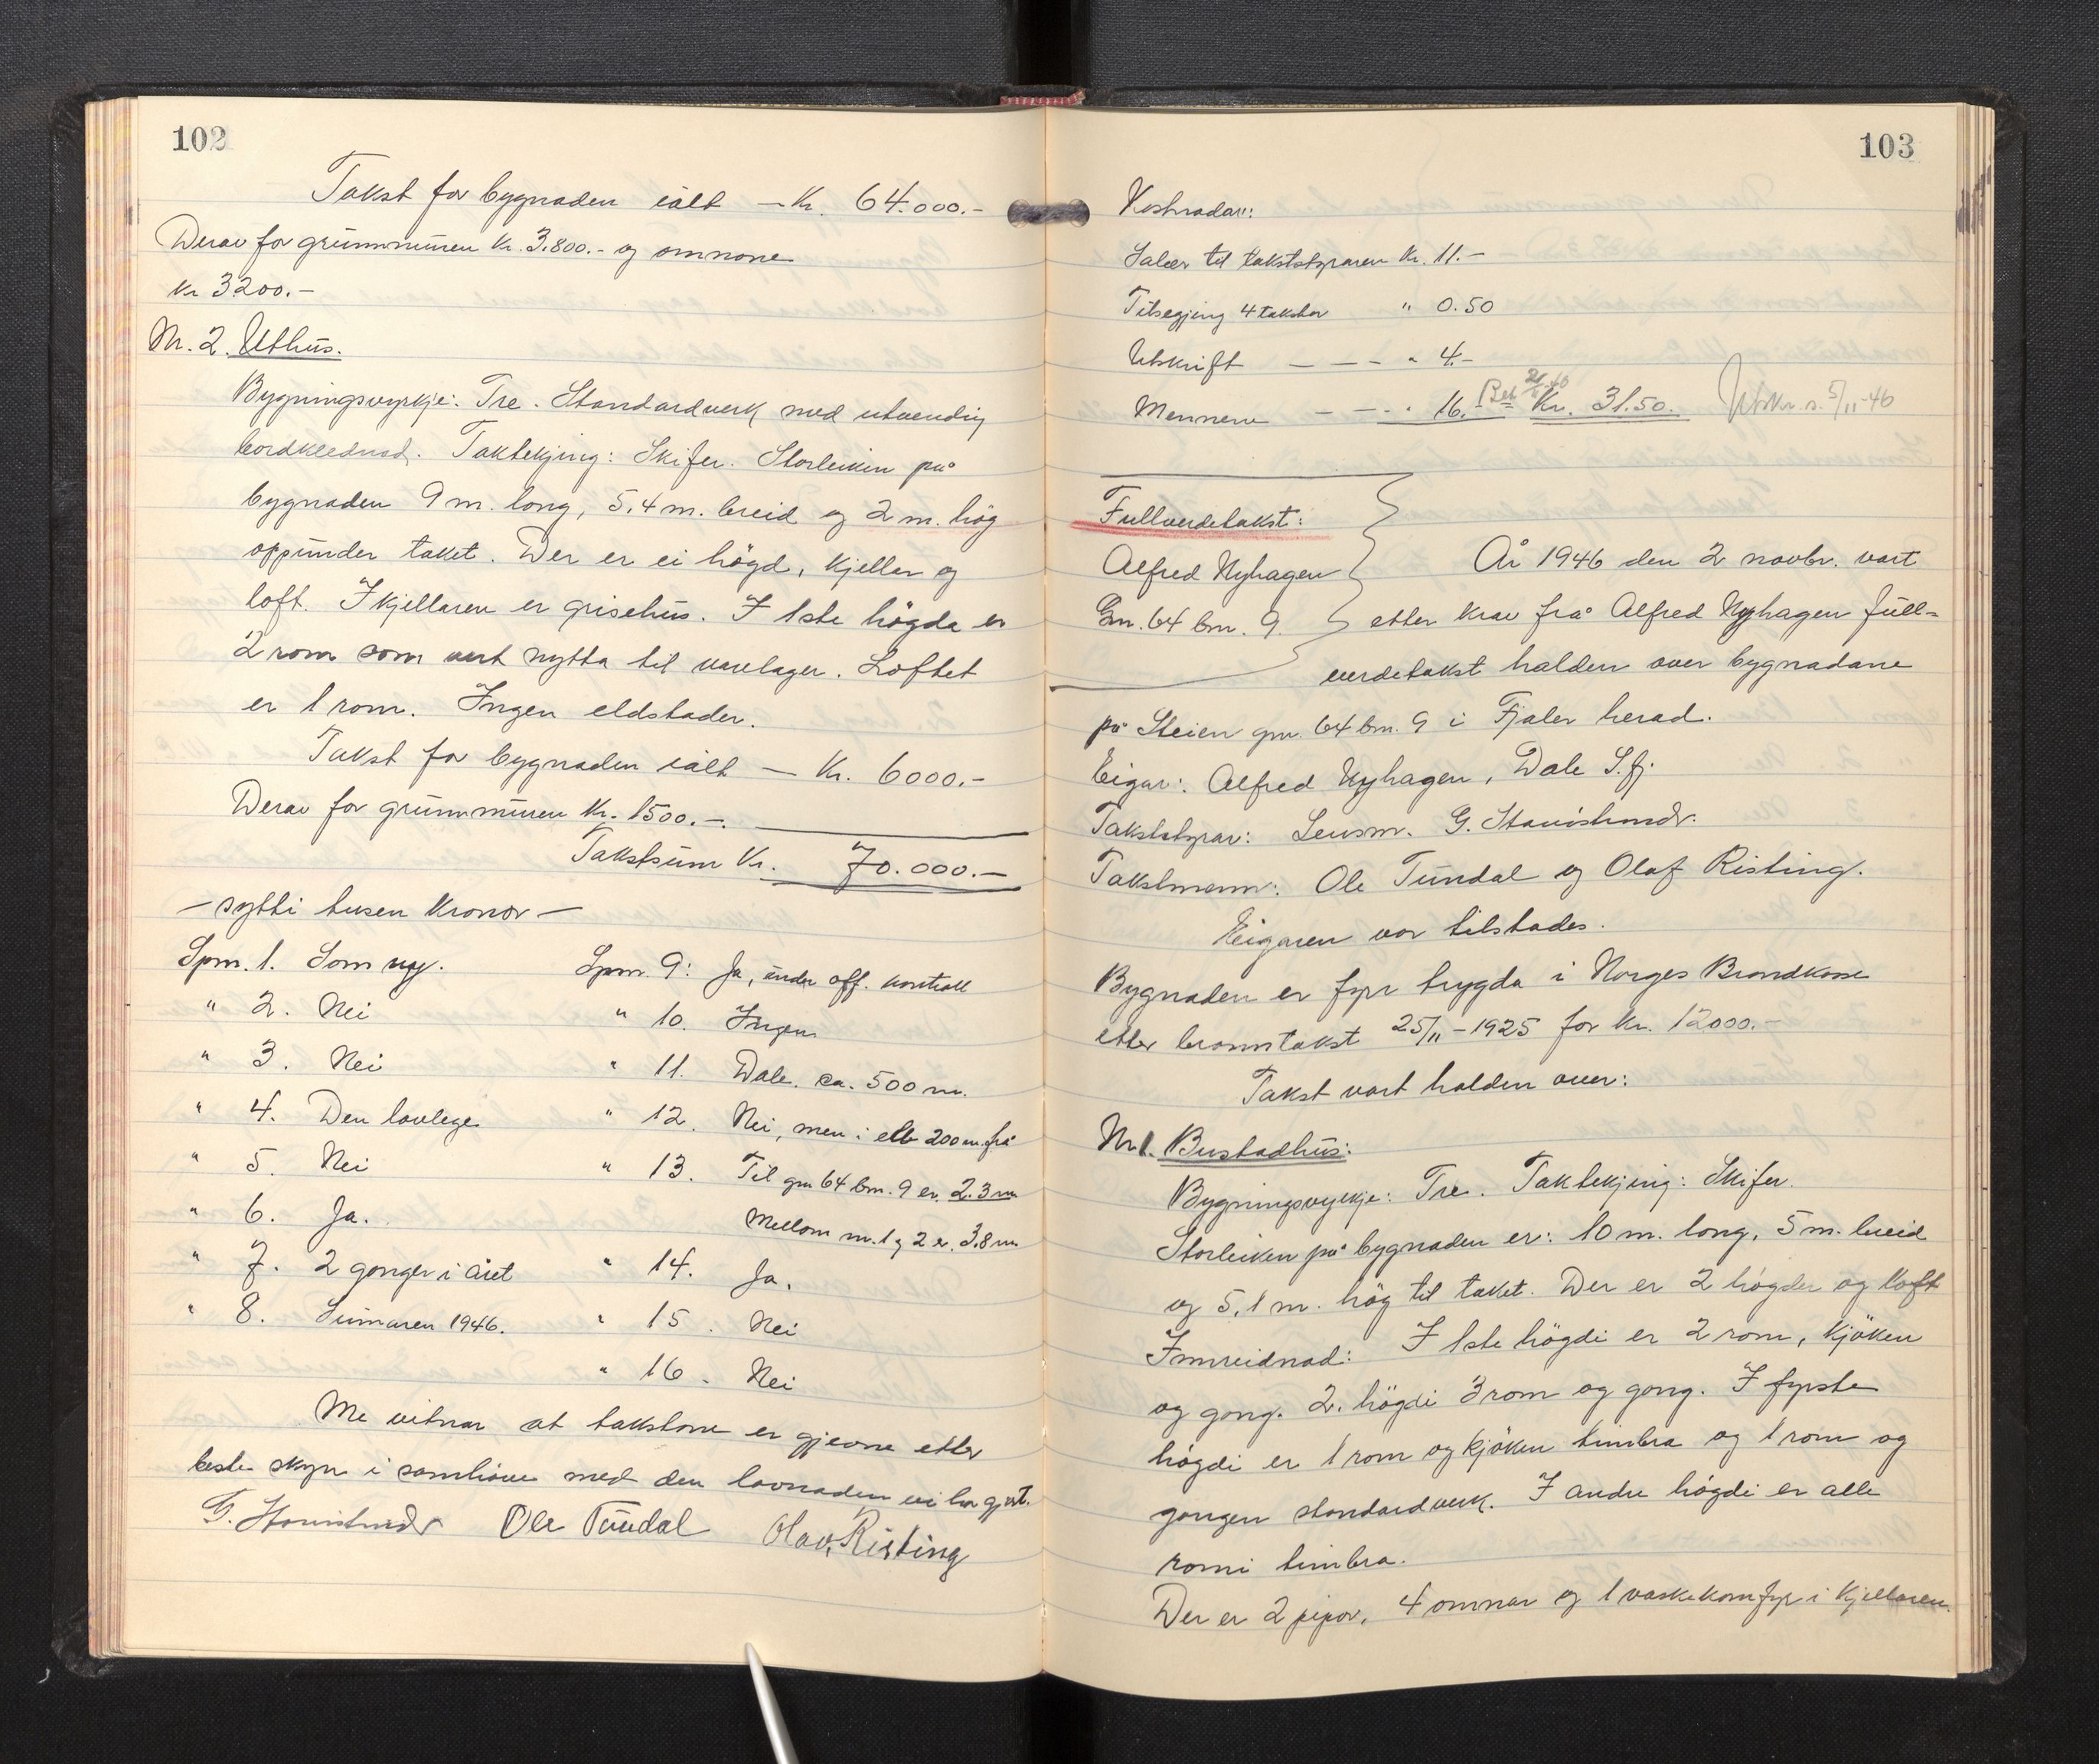 102
Takst for bygnaden ialt — Kr. 64.000.-
Derav for grunnmuren Kr. 3.800.- og omnone
kr 3200.-
Nr. 2. Uthus.
Bygningsvyrkje: Tre. Standardverk med utvendig
bordklednad. Taktekjing: Skifer. Storleiken på
bygnaden 9 m. long, 5,4 m. breid og 2 m. høg
oppunder taket. Der er ei høgd, kjellar og
loft. I kjellaren er grisehus. I 1ste høgda er
2 rom som vert nytta til varelager. Loftet
er 1 rom. Ingen eldstader.
Takst for bygnaden ialt — Kr. 6000.-
Derav for grunnmuren Kr. 1500.-.
Takstsum Kr. 70.000.—
— sytti tusen kronor —
Spm. 1. Som ny. Spm. 9: Ja, under off. kontroll
" 2. Nei " 10. Ingen
" 3. Nei " 11. Dale. ca. 500 m.
" 4. Den lovlege " 12. Nei, men i elv 200 m. frå
" 5. Nei " 13. Til gnr 64 bnr. 9 er 2.3 m
" 6. Ja. Mellom nr. 1 og 2 er 3,8 m.
" 7. 2 gonger i året " 14. Ja.
" 8. Sumaren 1946. " 15. Nei
" 16. Nei
Me vitnar at takstone er gjevne etter
beste skyn i samhøve med den lovnaden vi har gjort.
G. Stavøstrand Ole Tundal Olav Risting
103
Kostnadar:
Salær til takststyraren Kr. 11.-
Tilsegjing 4 takster " 0.50
Utskrift — — — " 4.-
Mennene — — - " 16.- Bet Kr. 31.50. Utskr. s. 5/11-46
Fullverdetakst:
Alfred Nyhagen År 1946 den 2 novbr. vart
Gnr. 64 bnr. 9. etter krav frå Alfred Nyhagen full-
verdetakst halden over bygnadane
på Steien gnr. 64 bnr. 9 i Fjaler herad.
Eigar: Alfred Nyhagen, Dale S.fj.
Takststyrar: Lensm. G. Stavøstrand.
Takstmenn: Ole Tundal og Olaf Risting.
Eigaren var tilstades.
Bygnaden er fyrr trygda i Norges Brandkasse
etter branntakst 25/11-1925 for kr. 12000.-
Takst vart halden over:
Nr 1. Bustadhus:
Bygningsvyrkje: Tre. Taktekjing: Skifer.
Storleiken på bygnaden er: 10 m. long, 5 m. breid
og 5,1 m. høg til taket. Der er 2 høgder og loft
Innreidnad: I 1ste høgdi er 2 rom, kjøken
og gong. 2. høgdi 3 rom og gong. I fyrste
høgdi er 1 rom og kjøken timbra og 1 rom og
gongen standardverk. I andre høgdi er alle
romi timbra.
Der er 2 pipor, 4 omnar og 1 vaskekomfyr i kjellaren.